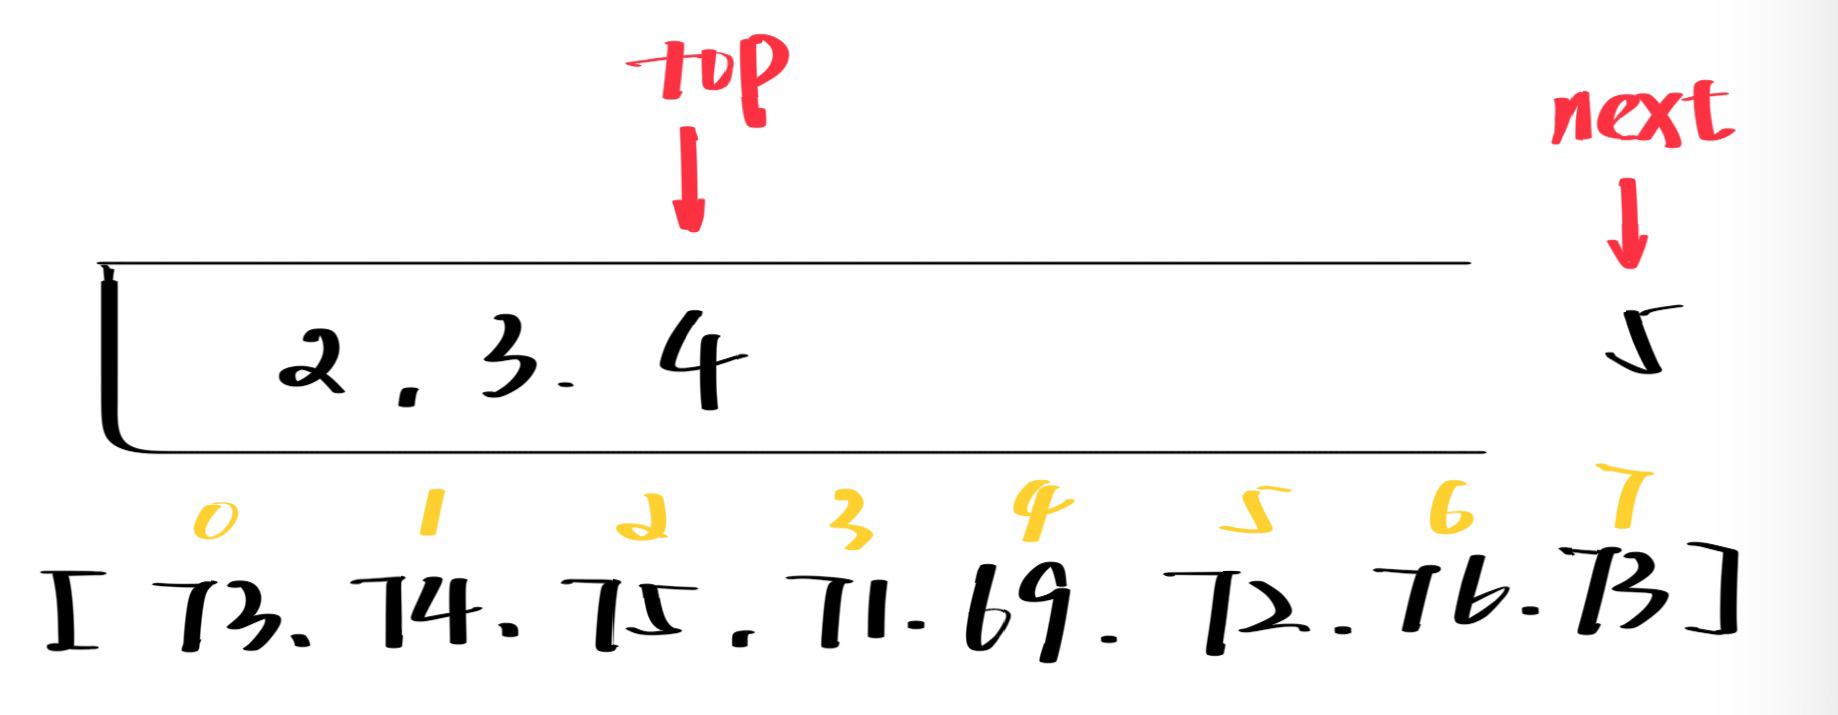 top
next
2 . 3 . 4 5
0 1 2 3 4 5 6 7
[ 73. 74. 75. 71. 69. 72. 76. 73 ]